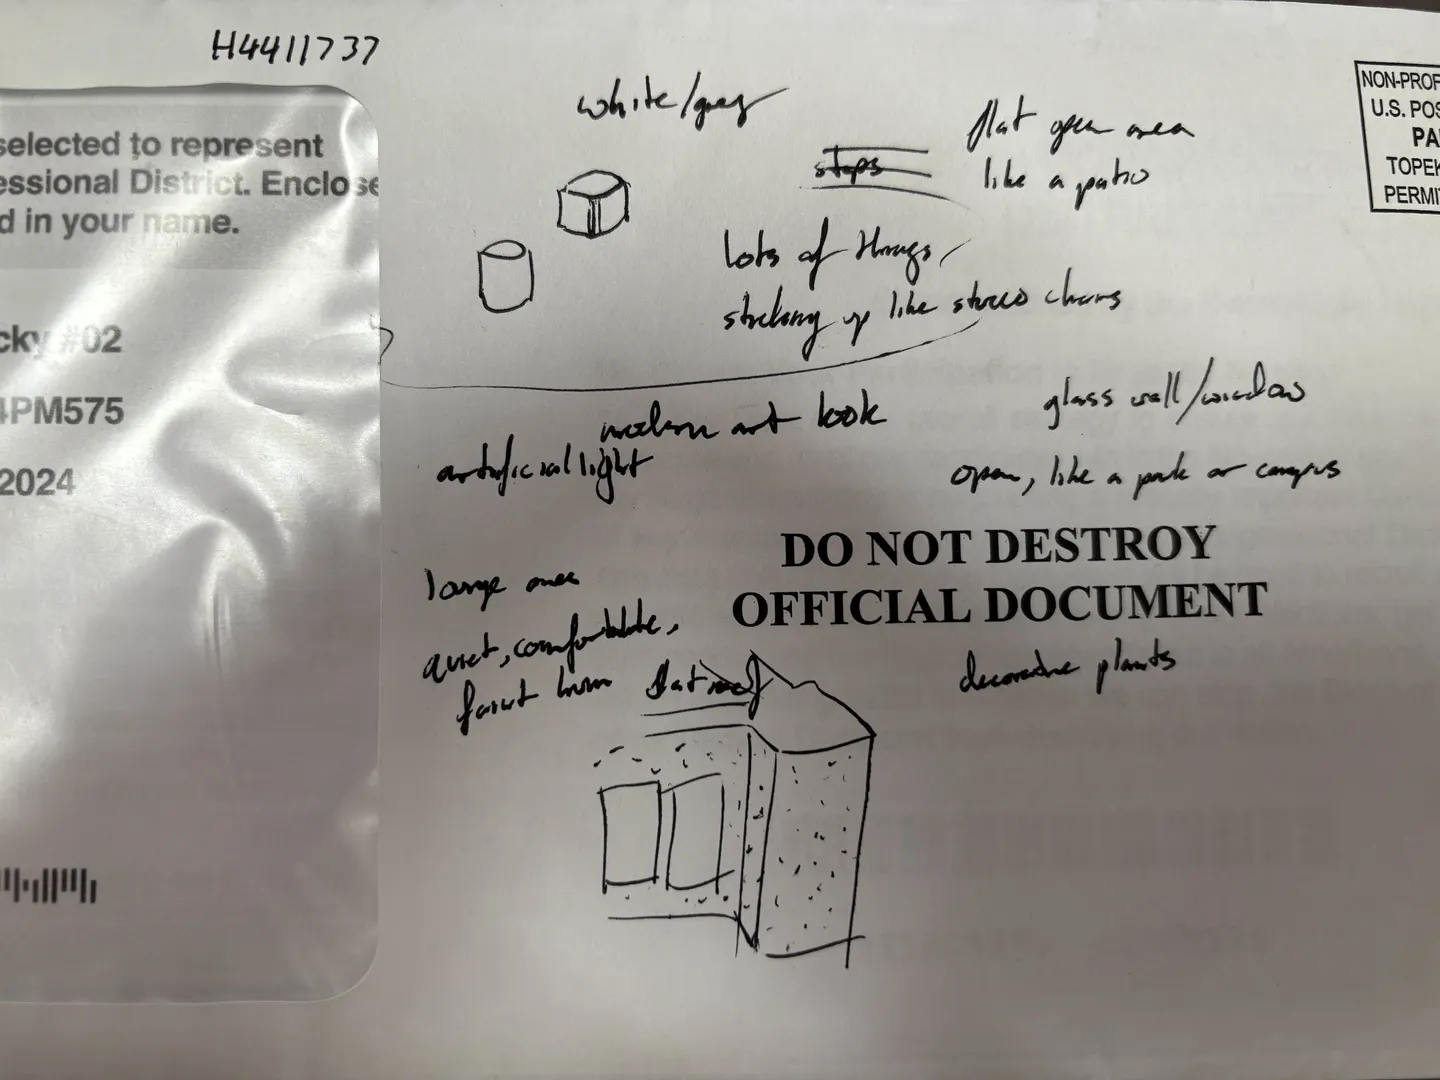 H4411737
selected to represent
essional District. Enclose
d in your name.
cky #02
4PM575
2024
NON-PROF
U.S. POS
PA
TOPEK
PERMI
white/grey
steps
flat open area
like a patio
lots of things
sticking up like stucco chairs
modern art look
artificial light
glass wall/window
open, like a park or campus
DO NOT DESTROY
OFFICIAL DOCUMENT
large
quiet, comfortable,
faint hum
flat roof
decorative plants